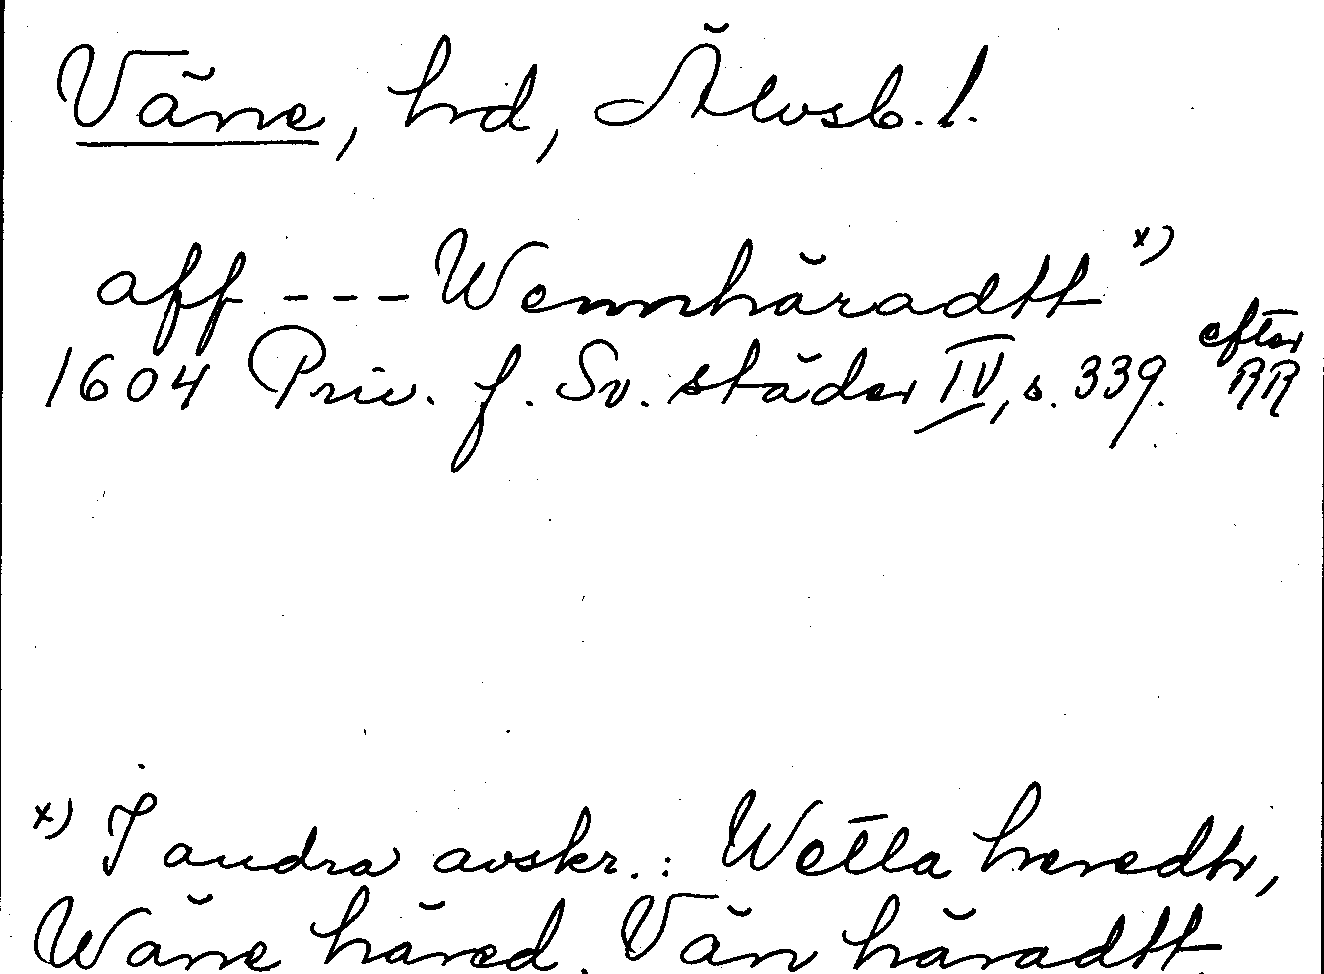 Väne, hrd, Älvsb. l.
aff --- Wennhäradtt x)
1604 Priv. f. Sv. städer IV, s. 339. efter RR
x) I andra avskr.: Wetla heredh,
Wäne häred. Vän häradtt